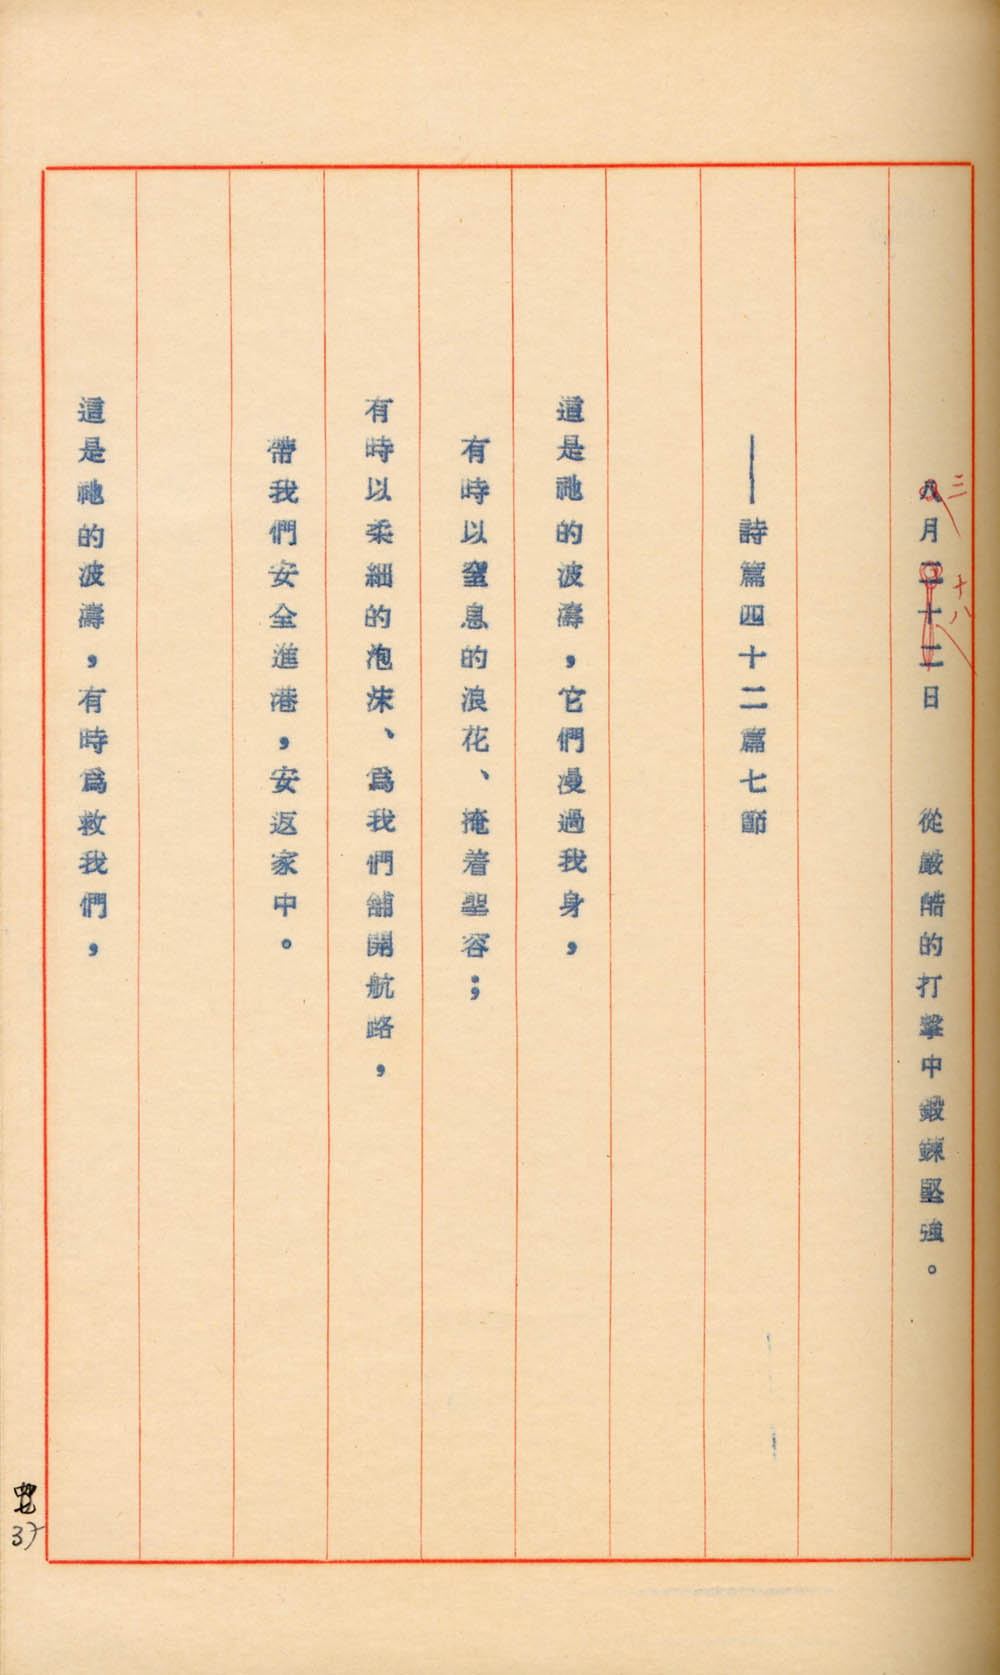 三
十八
八月二十二日　從嚴酷的打擊中鍛鍊堅強。
——詩篇四十二篇七節
這是祂的波濤，它們漫過我身，
有時以窒息的浪花、掩着聖容；
有時以柔細的泡沫、為我們舖開航路，
帶我們安全進港，安返家中。
這是祂的波濤，有時為救我們，
37